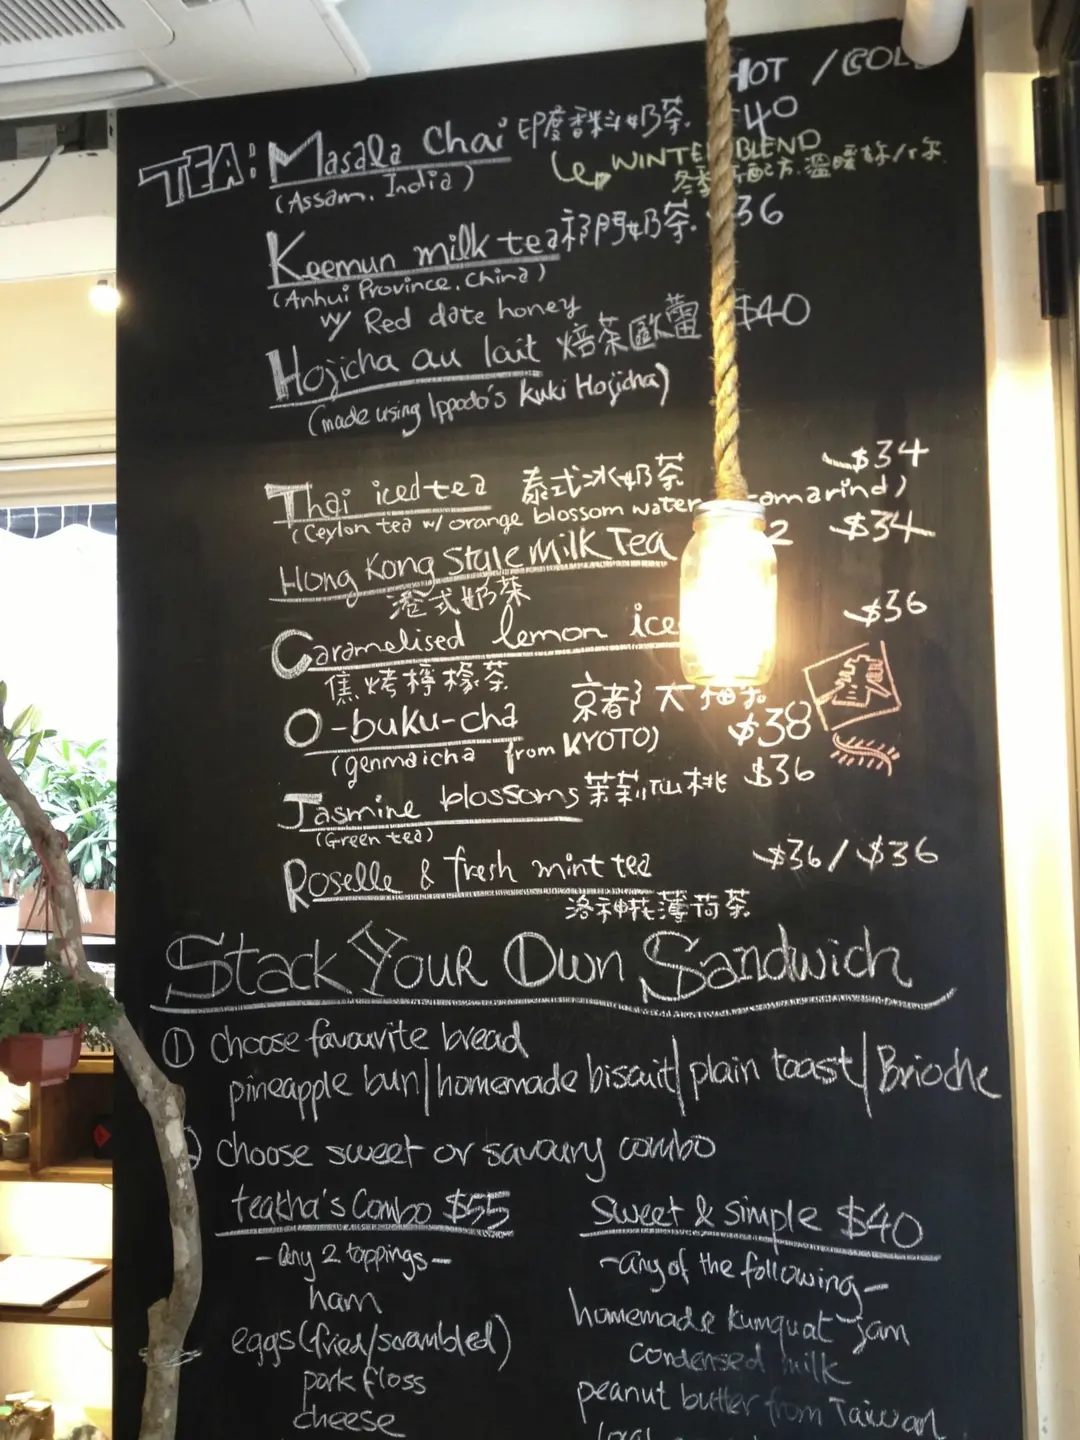 HOT / COLD
TEA: Masala Chai 印度香料奶茶 $40
(Assam, India)
WINTER BLEND
冬季 配方, 溫暖
Keemun milk tea 祁門奶茶 $36
(Anhui Province, China)
w/ Red date honey
Hojicha au lait 焙茶歐蕾 $40
(made using Ippodo's Kuki Hojicha)
Thai iced tea 泰式冰奶茶 $34
(Ceylon tea w/ orange blossom water tamarind)
Hong Kong Style Milk Tea 2 $34
港式奶茶
Caramelised lemon iced $36
焦烤檸檬茶
O-buku-cha 京都 大
(genmaicha from KYOTO) $38
Jasmine blossoms 茉莉仙桃 $36
(Green tea)
Roselle & fresh mint tea $36 / $36
洛神花薄荷茶
Stack Your Own Sandwich
① choose favourite bread
pineapple bun | homemade biscuit | plain toast | Brioche
② choose sweet or savoury combo
teakha's Combo $55
- any 2 toppings -
ham
eggs (fried/scrambled)
pork floss
cheese
Sweet & simple $40
- any of the following -
homemade kumquat jam
condensed milk
peanut butter from Taiwan
local